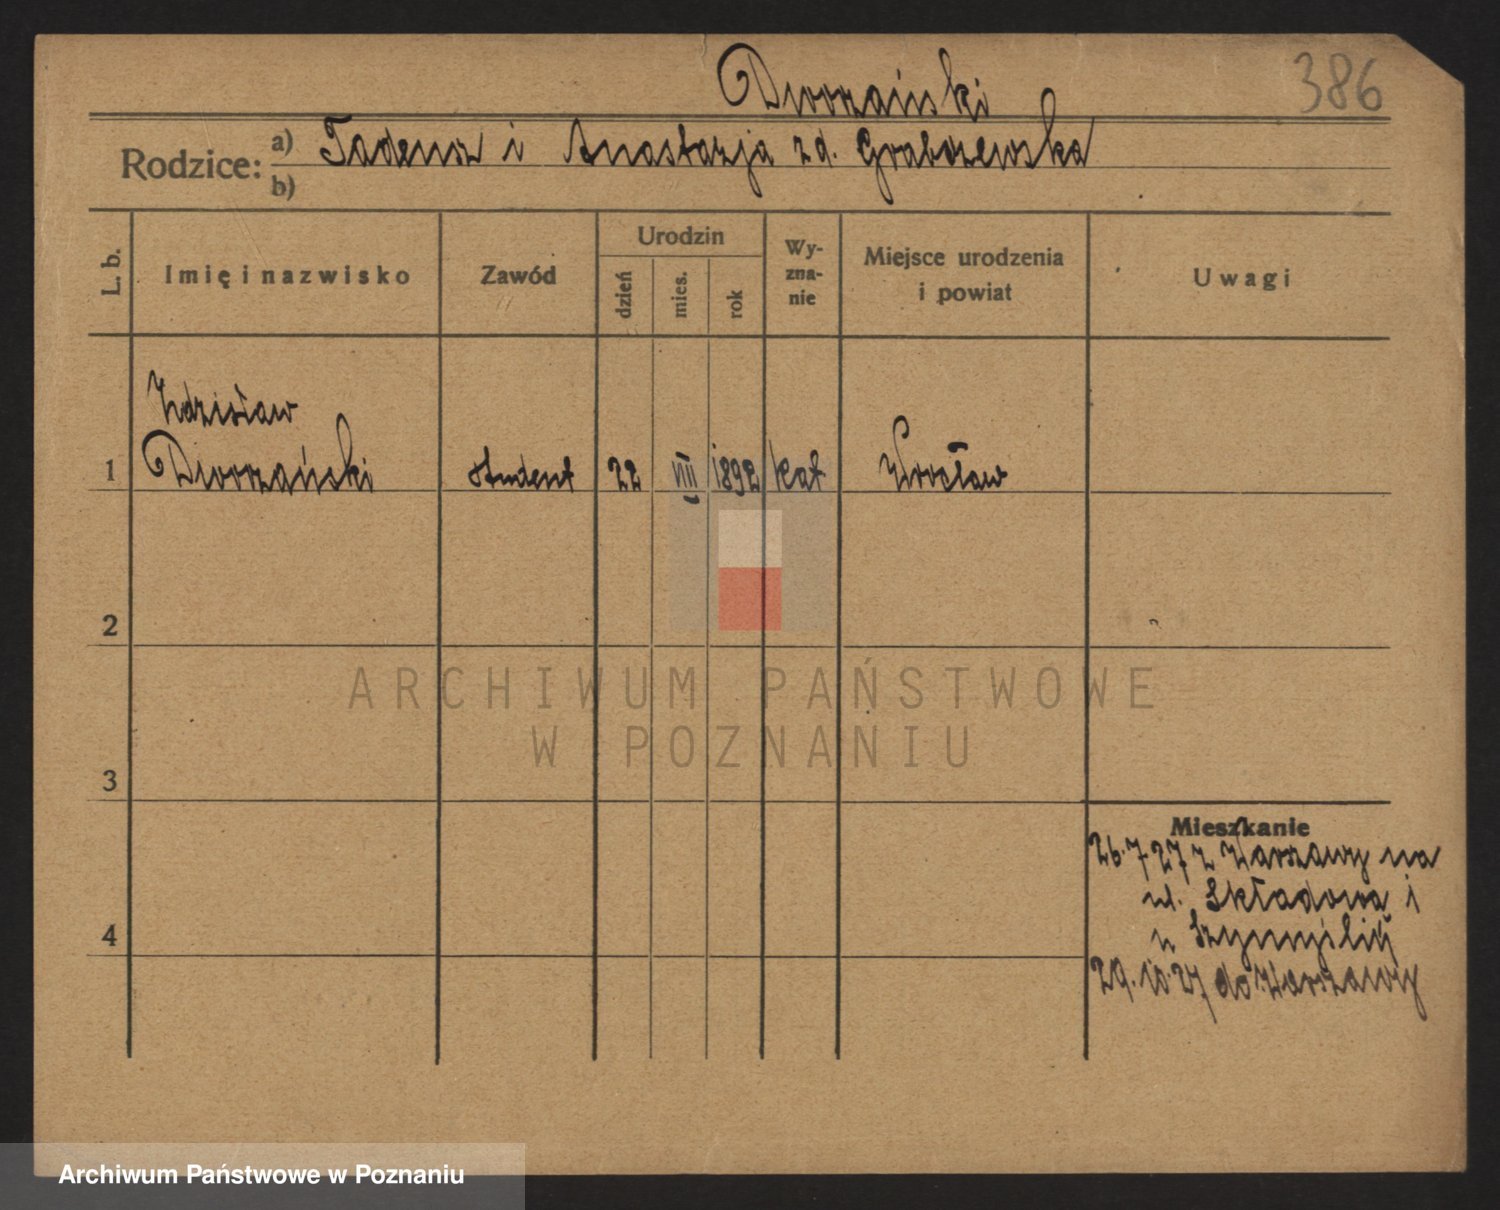 Dworzański
386
Rodzice:
a) Tadeusz i Anastazja zd. Grabszewska
b)
L. b.
Imię i nazwisko
Zawód
Urodzin
dzień
mies.
rok
Wy-
zna-
nie
Miejsce urodzenia
i powiat
Uwagi
Zdzisław
1 Dworzański student 22 VIII 1892 kat Wrocław
2
3
ARCHIWUM PAŃSTWOWE
W POZNANIU
Mieszkanie
26.7.27 z Warszawy na
ul. Składowa i
u
4
29.10.27 do Warszawy
Archiwum Państwowe w Poznaniu